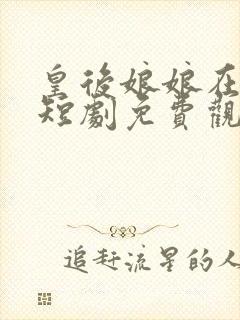 皇後娘娘在
短劇免費觀
追赶流星的人